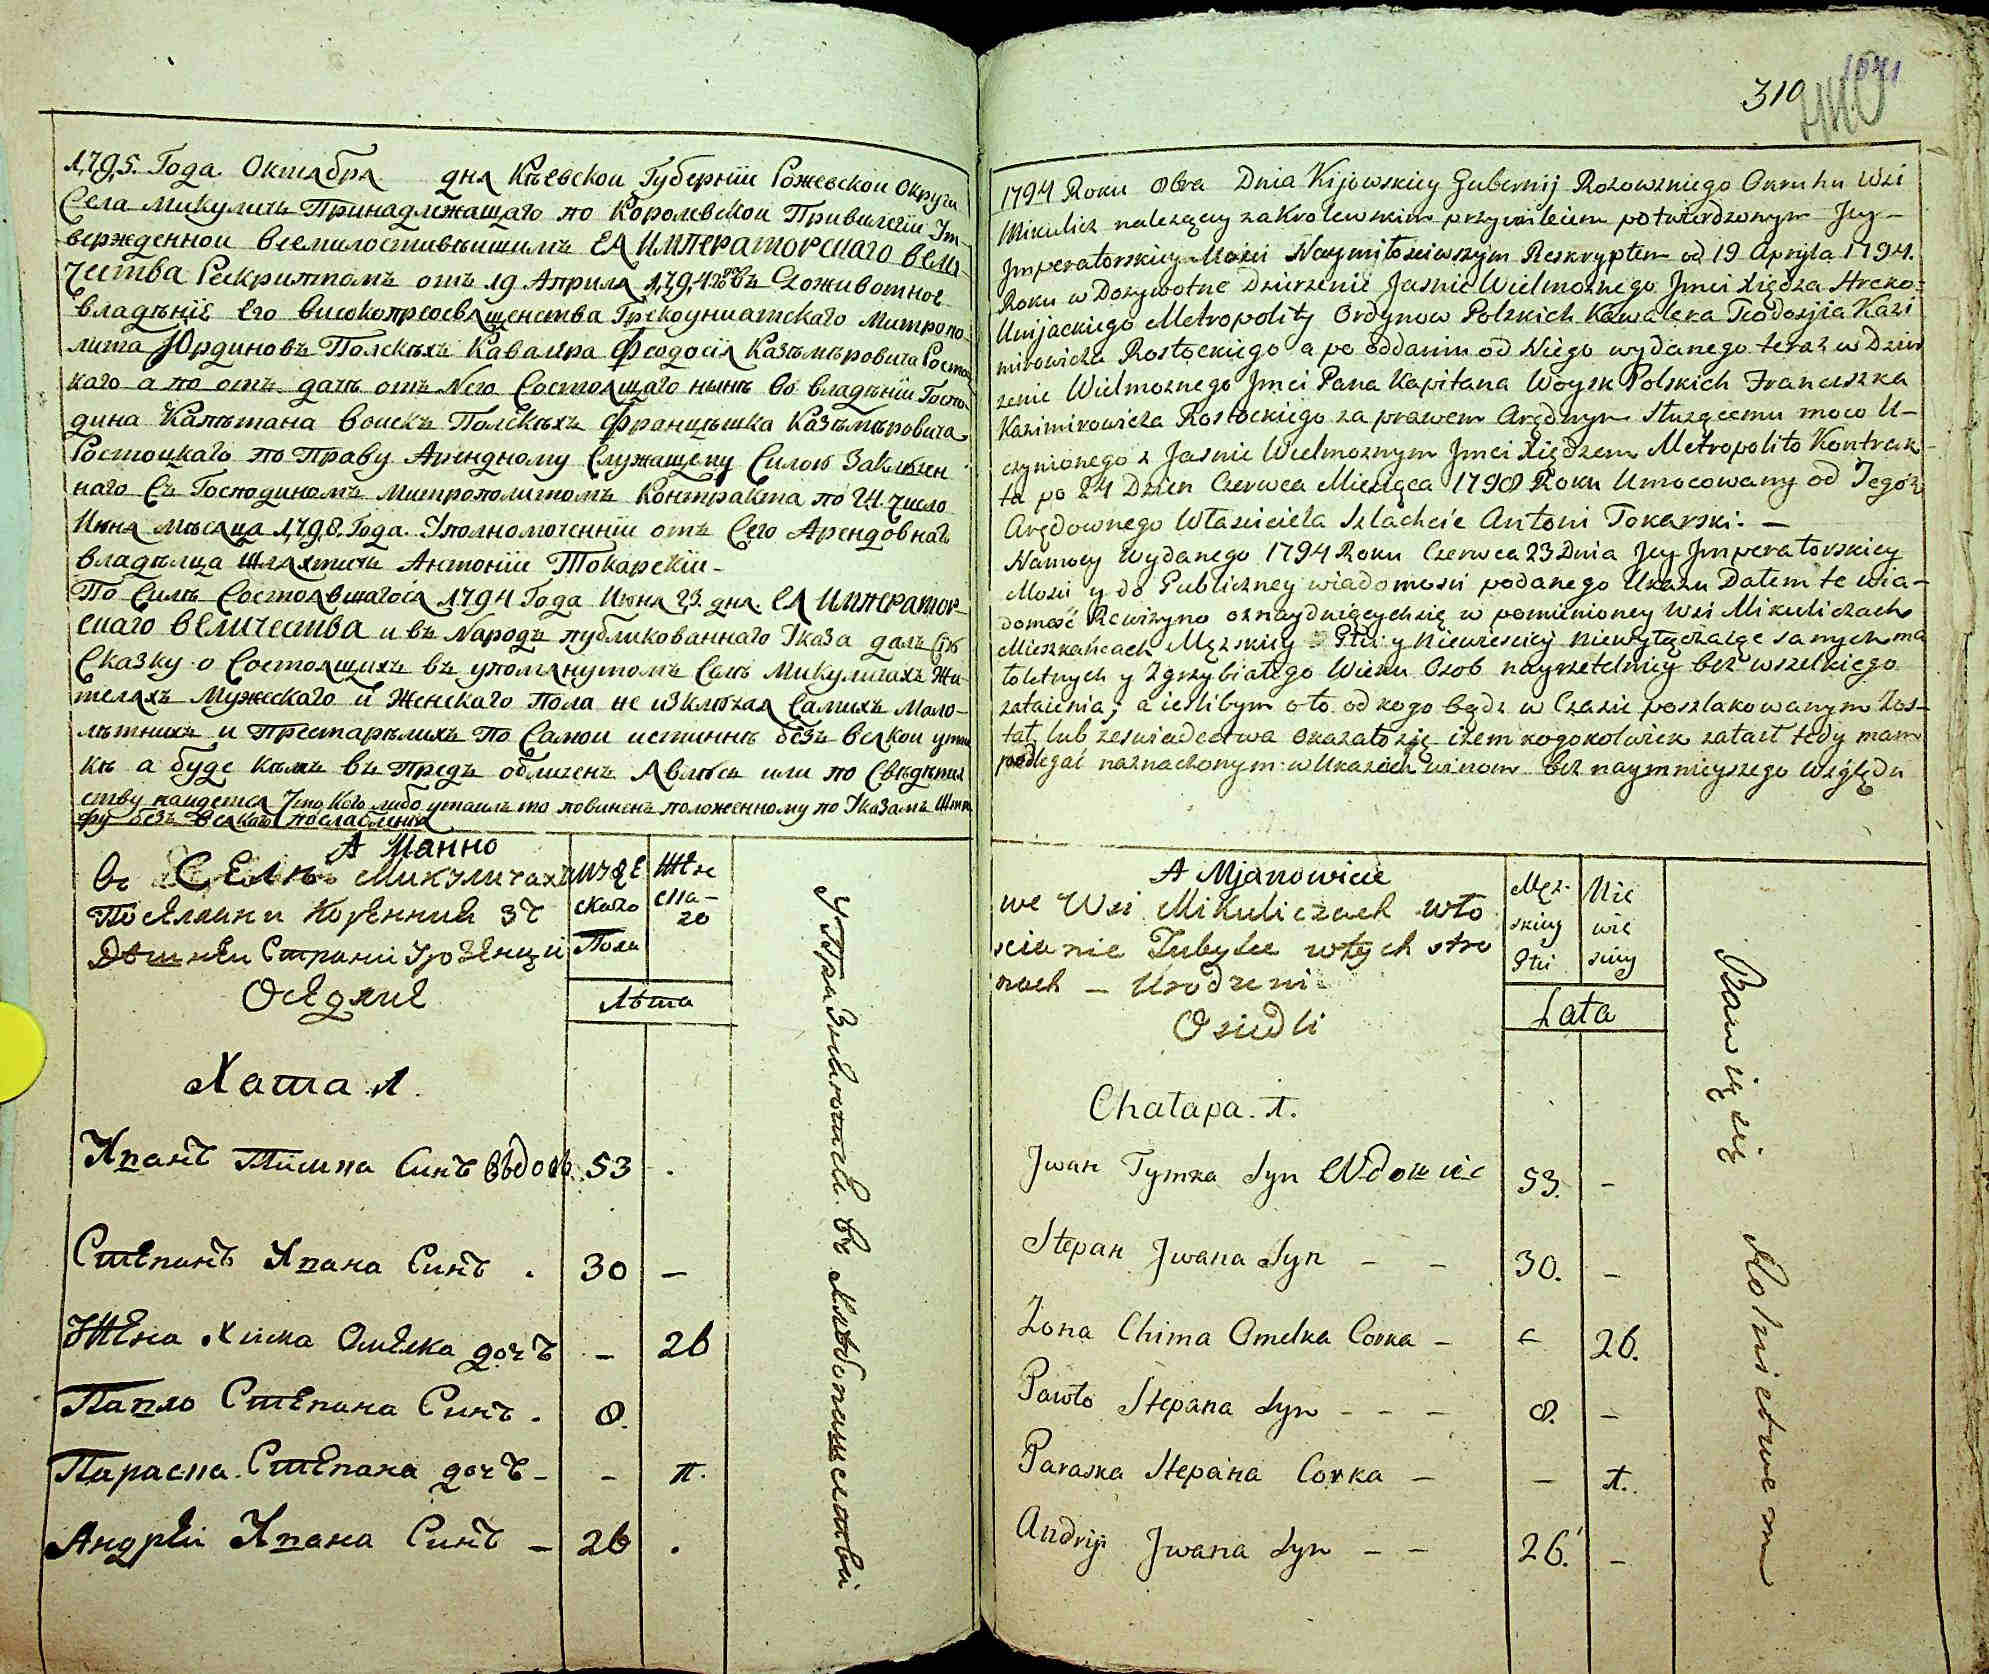 1795. Года Октября дня Кіевской Губерніи Рожевской Округи
Села Микуличъ Принадлежащаго по Королевской Привилегіи Ут-
вержденной Всемилостивѣишимъ ЕЯ ИМПЕРАТОРСКАГО Вели-
чества Рескриптомъ отъ 19 Априля 1794 году въ Доживотное
владѣніе Его Високопреосвященства Грекоуниатскаго Митропо-
лита Юрдиновъ Полскѣхъ Кавалѣра Феодосія Казѣмѣровича Росто-
каго а по отъ дачѣ отъ Него Состоящаго нынѣ во владѣніи Госпо-
дина Капѣтана воискъ Полскѣхъ Францѣшка Казѣмѣровича
Ростоцкаго по Праву Арендному Служащему Силою Заключен
наго Съ Господиномъ Митрополитомъ Контракта по 24. Число
Июня мѣсяца 1798. Года. Уполномоченніи отъ Сего Арендовнаго
владѣлца Шляхтичъ Антоніи Токарскіи-
По Силѣ Состоявшагося 1794 Года Июня 23. дня. ЕЯ ИМПЕРАТОР-
скаго ВЕЛИЧЕСТВА и въ Народъ публикованнаго Указа далъ Сію
Сказку о Состоящихъ въ упомянутомъ Селѣ Микуличахъ Жи-
телахъ Мужескаго и Женскаго Пола не изключая Самихъ Мало-
лѣтнихъ и Престарѣлихъ По Самои истиннѣ безъ всякои утаи
ки а буде кѣмъ въ предъ обличенъ Явлюся или по Свѣдѣтел
ству наидется Что Кого либо утаилъ то повиненъ положенному по Указамъ Штра
фу безъ всякаго послабления
А Манно
Въ СЕЛѢ Микуличахъ
Поселяни Корѣнниѣ зъ
Дѣшнеи Страни Урожѣнци
Осѣдлиѣ
мужескаго
Пола
Женскаго
Лѣта
Упражняютця въ хлѣбопашестви
Хата 1.
Иванъ Тимка Синъ Вдовъ. 53 .
Степанъ Ивана Синъ . 30 —
Жена Хима Омелка дочъ — 26
Павло Степана Синъ . 8.
Параска Степана дочъ — — 1.
Андрѣи Ивана Синъ — 26 .
310
1794 Roku 8bra Dnia Kijowskiey Gubernij Rozowskiego Okruhu Wsi
Mikulicz nalezącey za Krolewskim przywileiem potwierdzonym Jey-
Jmperatorskiey Mosci Naymiłosciwszym Reskryptem od 19 Apryla 1794.
Roku w Dozywotne Dzierzenie Jasnie Wielmoznego Jmci Xiędza Hreko-
Unijackiego Metropolity Orderow Polskich Kawalera Teodozjia Kazi
mirowicza Rostockiego a po oddaniu od Niego wydanego teraz w Dzier
zenie Wielmoznego Jmci Pana Kapitana Woysk Polskich Franciszka
Kazimirowicza Rostockiego za prawem Arędnym Służącemu moco U-
czynionego z Jasnie Wielmoznym Jmci Xiędzem Metropolito Kontrak-
ta po 24 Dzien Czerwca Miesiąca 1798 Roku Umocowany od Tegóż
Arędownego Własciciela Szlachcic Antoni Tokarski. —
Namocy Wydanego 1794 Roku Czerwca 23 Dnia Jey Jmperatorskiey
Mosci y do Publiczney wiadomosci podanego Ukazu Dałem te wia-
domość Rewizyno oznayduiącychsię w pomienioney Wsi Mikuliczach
Mieszkańcach Męzskiey Płci y Niewiesciey niewyłączaiąc samych ma
łoletnych y Zgrzybiałego Wieku Osob nayrzetelniey bez wszelkiego
zataienia, a ieslibym oto od kogo bądz w Czasie poszlakowanym Zos-
tał, lub zeswiadectwa okazało się izem kogokolwiek zataił tedy mam
podlegać naznaczonym w Ukazach winom bez naymnieyszego Względu
A Mjanowicie
we Wsi Mikuliczach wło
scianie Tubylce wtych stro
nach — Urodzeni
Osiedli
Męz-
skiey
Płci
Nie
wie
sciey
Lata
Bawią się Rolnictwem
Chałapa. 1.
Jwan Tymka Syn Wdowiec 53. —
Stepan Jwana Syn — — 30. —
Zona Chima Omelka Corka — — 26.
Pawło Stepana Syn — — — 8. —
Paraska Stepana Corka — — 1.
Andrij Jwana Syn — — 26. —